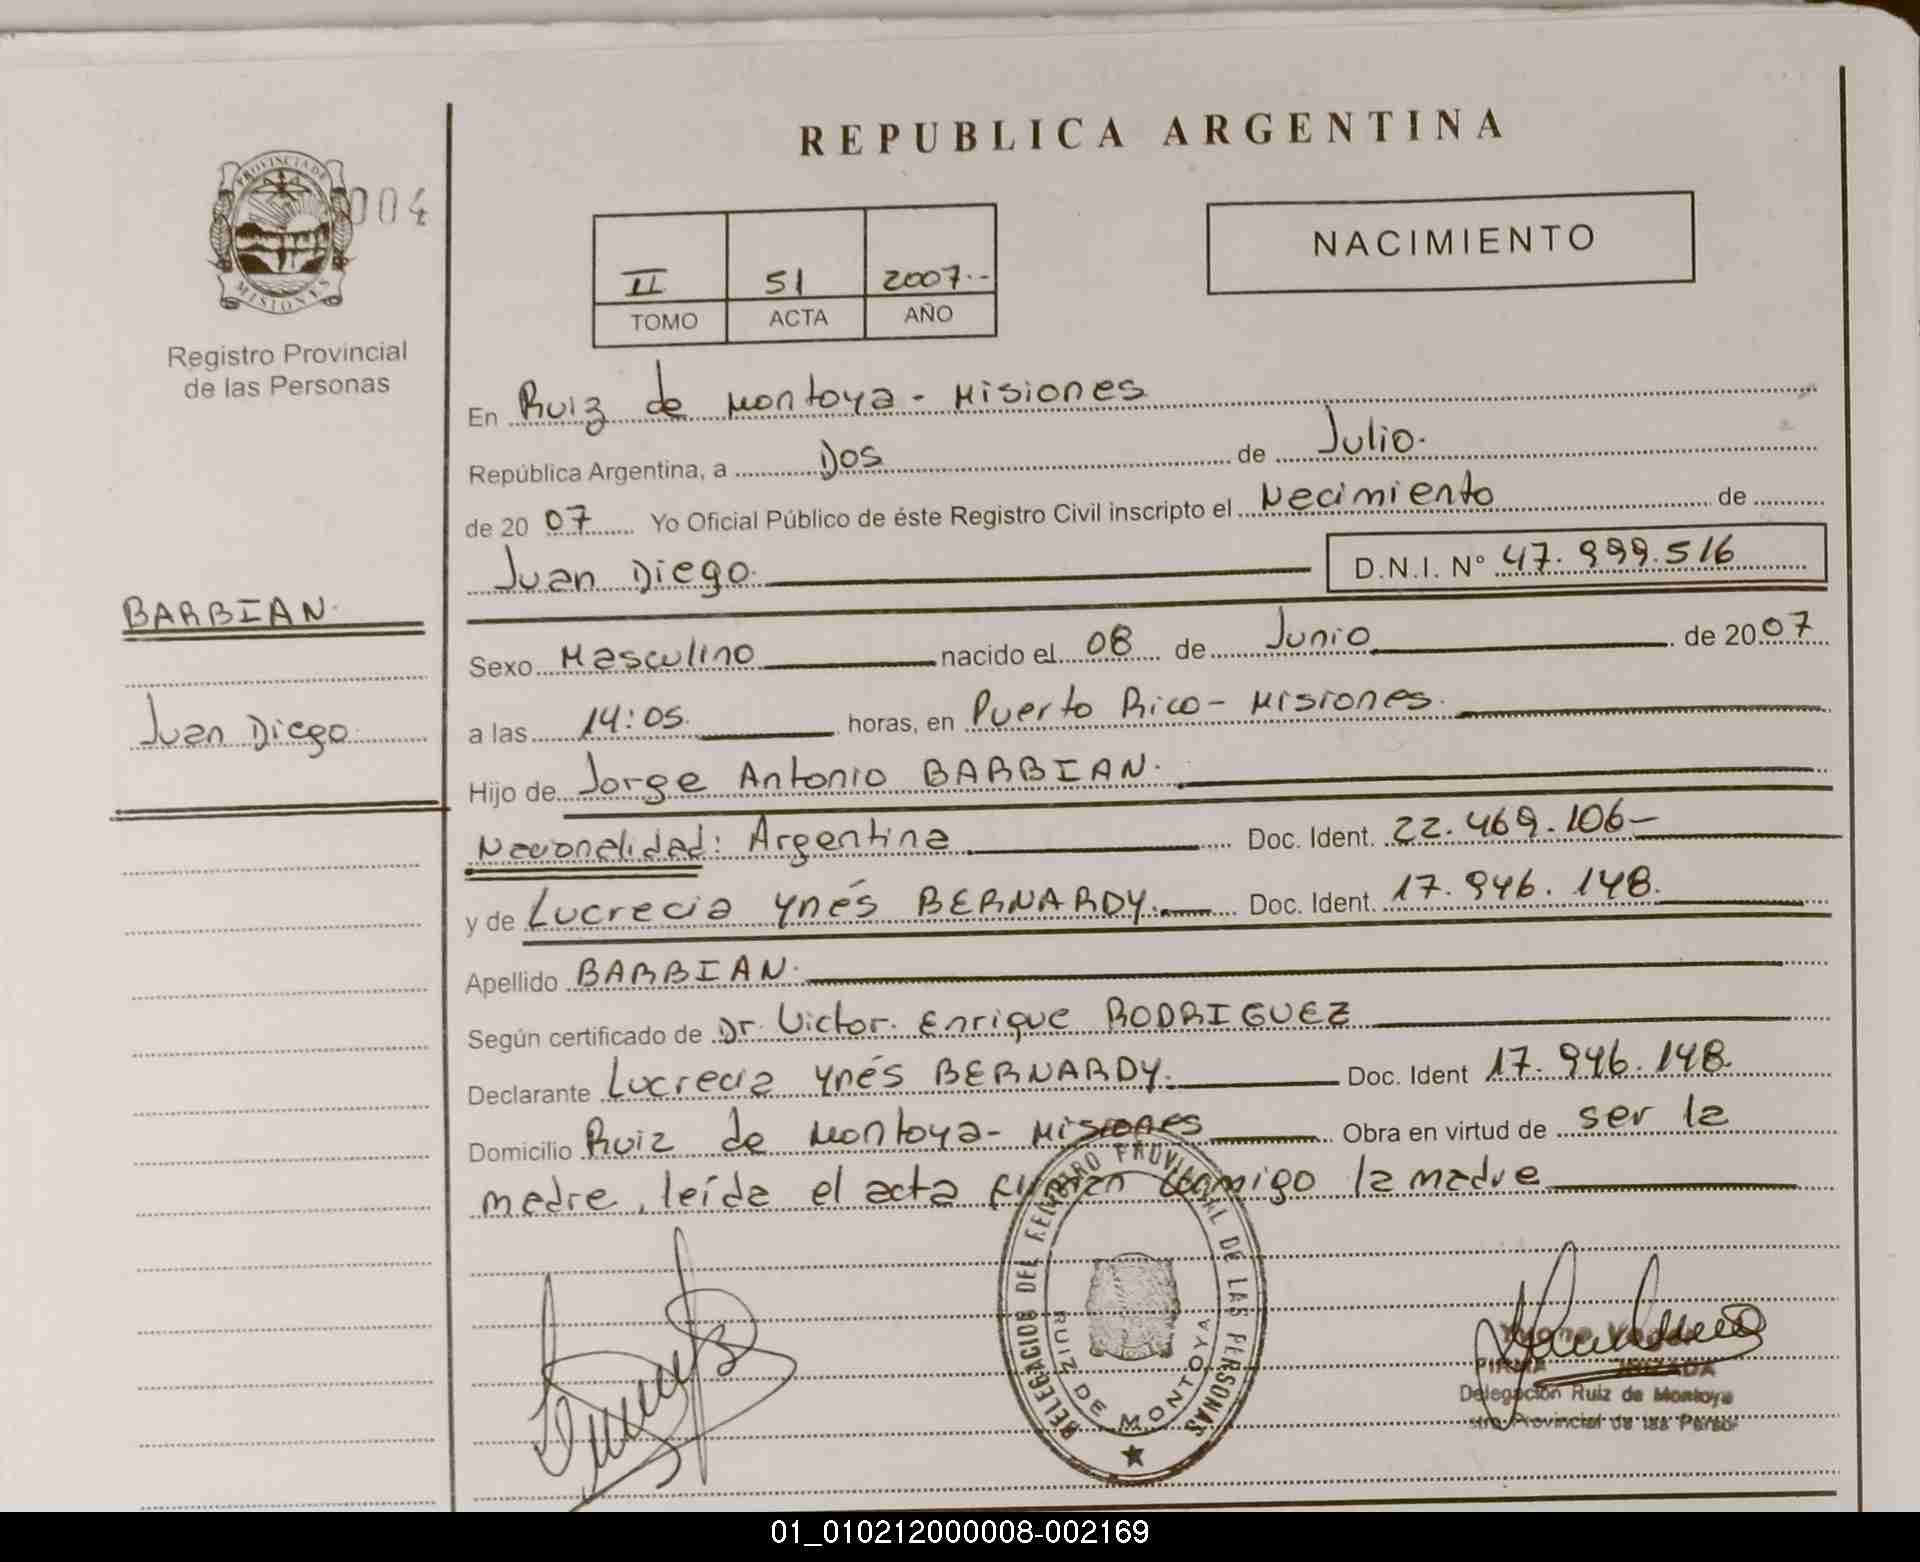 REPUBLICA ARGENTINA
PROVINCIA DE
MISIONES
004
Registro Provincial
de las Personas
NACIMIENTO
II 51 2007.-
TOMO ACTA AÑO
En Ruiz de Montoya - Misiones
República Argentina, a Dos de Julio.
de 20 07 Yo Oficial Público de éste Registro Civil inscripto el Nacimiento de
Juan Diego. D.N.I. N° 47.999.516
BARBIAN.
Juan Diego.
Sexo Masculino nacido el 08 de Junio de 20 07
a las 14:05. horas, en Puerto Rico - Misiones.
Hijo de Jorge Antonio BARBIAN.
Nacionalidad: Argentina Doc. Ident. 22.469.106-
y de Lucrecia Ynés BERNARDY. Doc. Ident. 17.946.148.
Apellido BARBIAN.
Según certificado de Dr. Victor Enrique RODRIGUEZ
Declarante Lucrecia Ynés BERNARDY. Doc. Ident 17.946.148.
Domicilio Ruiz de Montoya - Misiones Obra en virtud de ser la
madre, leída el acta firman conmigo la madre
DELEGACION DEL REGISTRO PROVINCIAL DE LAS PERSONAS
RUIZ DE MONTOYA
FIRMA
Delegación Ruiz de Montoya
Provincial de las
01_010212000008-002169